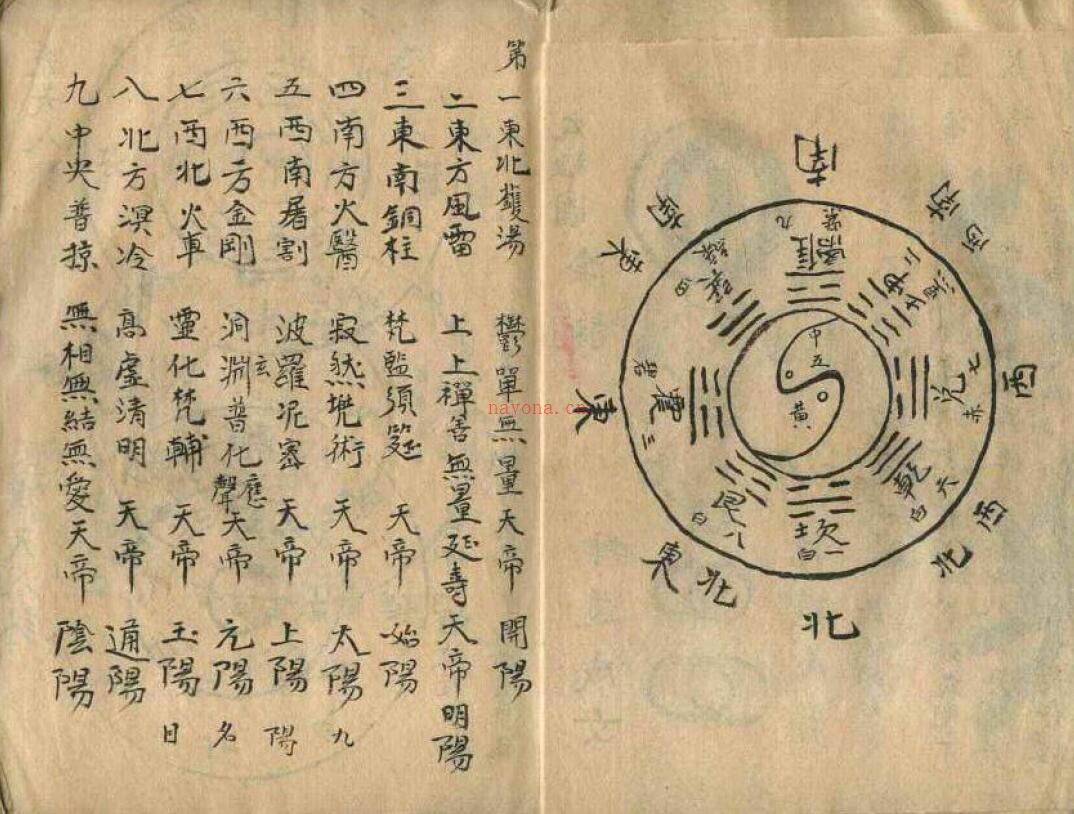 南
西南
西
西北
北
東北
東
東南
離 九 紫
坤 二 黑
兌 七 赤
乾 六 白
坎 一 白
艮 八 白
震 三 碧
巽 四 綠
中五
黃
第一東北鑊湯 鬱單無量天帝 開陽
二東方風雷 上上禪善無量延壽天帝明陽
三東南銅柱 梵監須筵 天帝 始陽
四南方火醫 寂然兜術 天帝 太陽 九
五西南屠割 波羅泥密 天帝 上陽 陽
六西方金剛 洞淵玄普化應聲天帝 元陽 名
七西北火車 靈化梵輔 天帝 玉陽 日
八北方溟冷 高虛清明 天帝 通陽
九中央普掠 無相無結無愛天帝 陰陽
nayona.cn